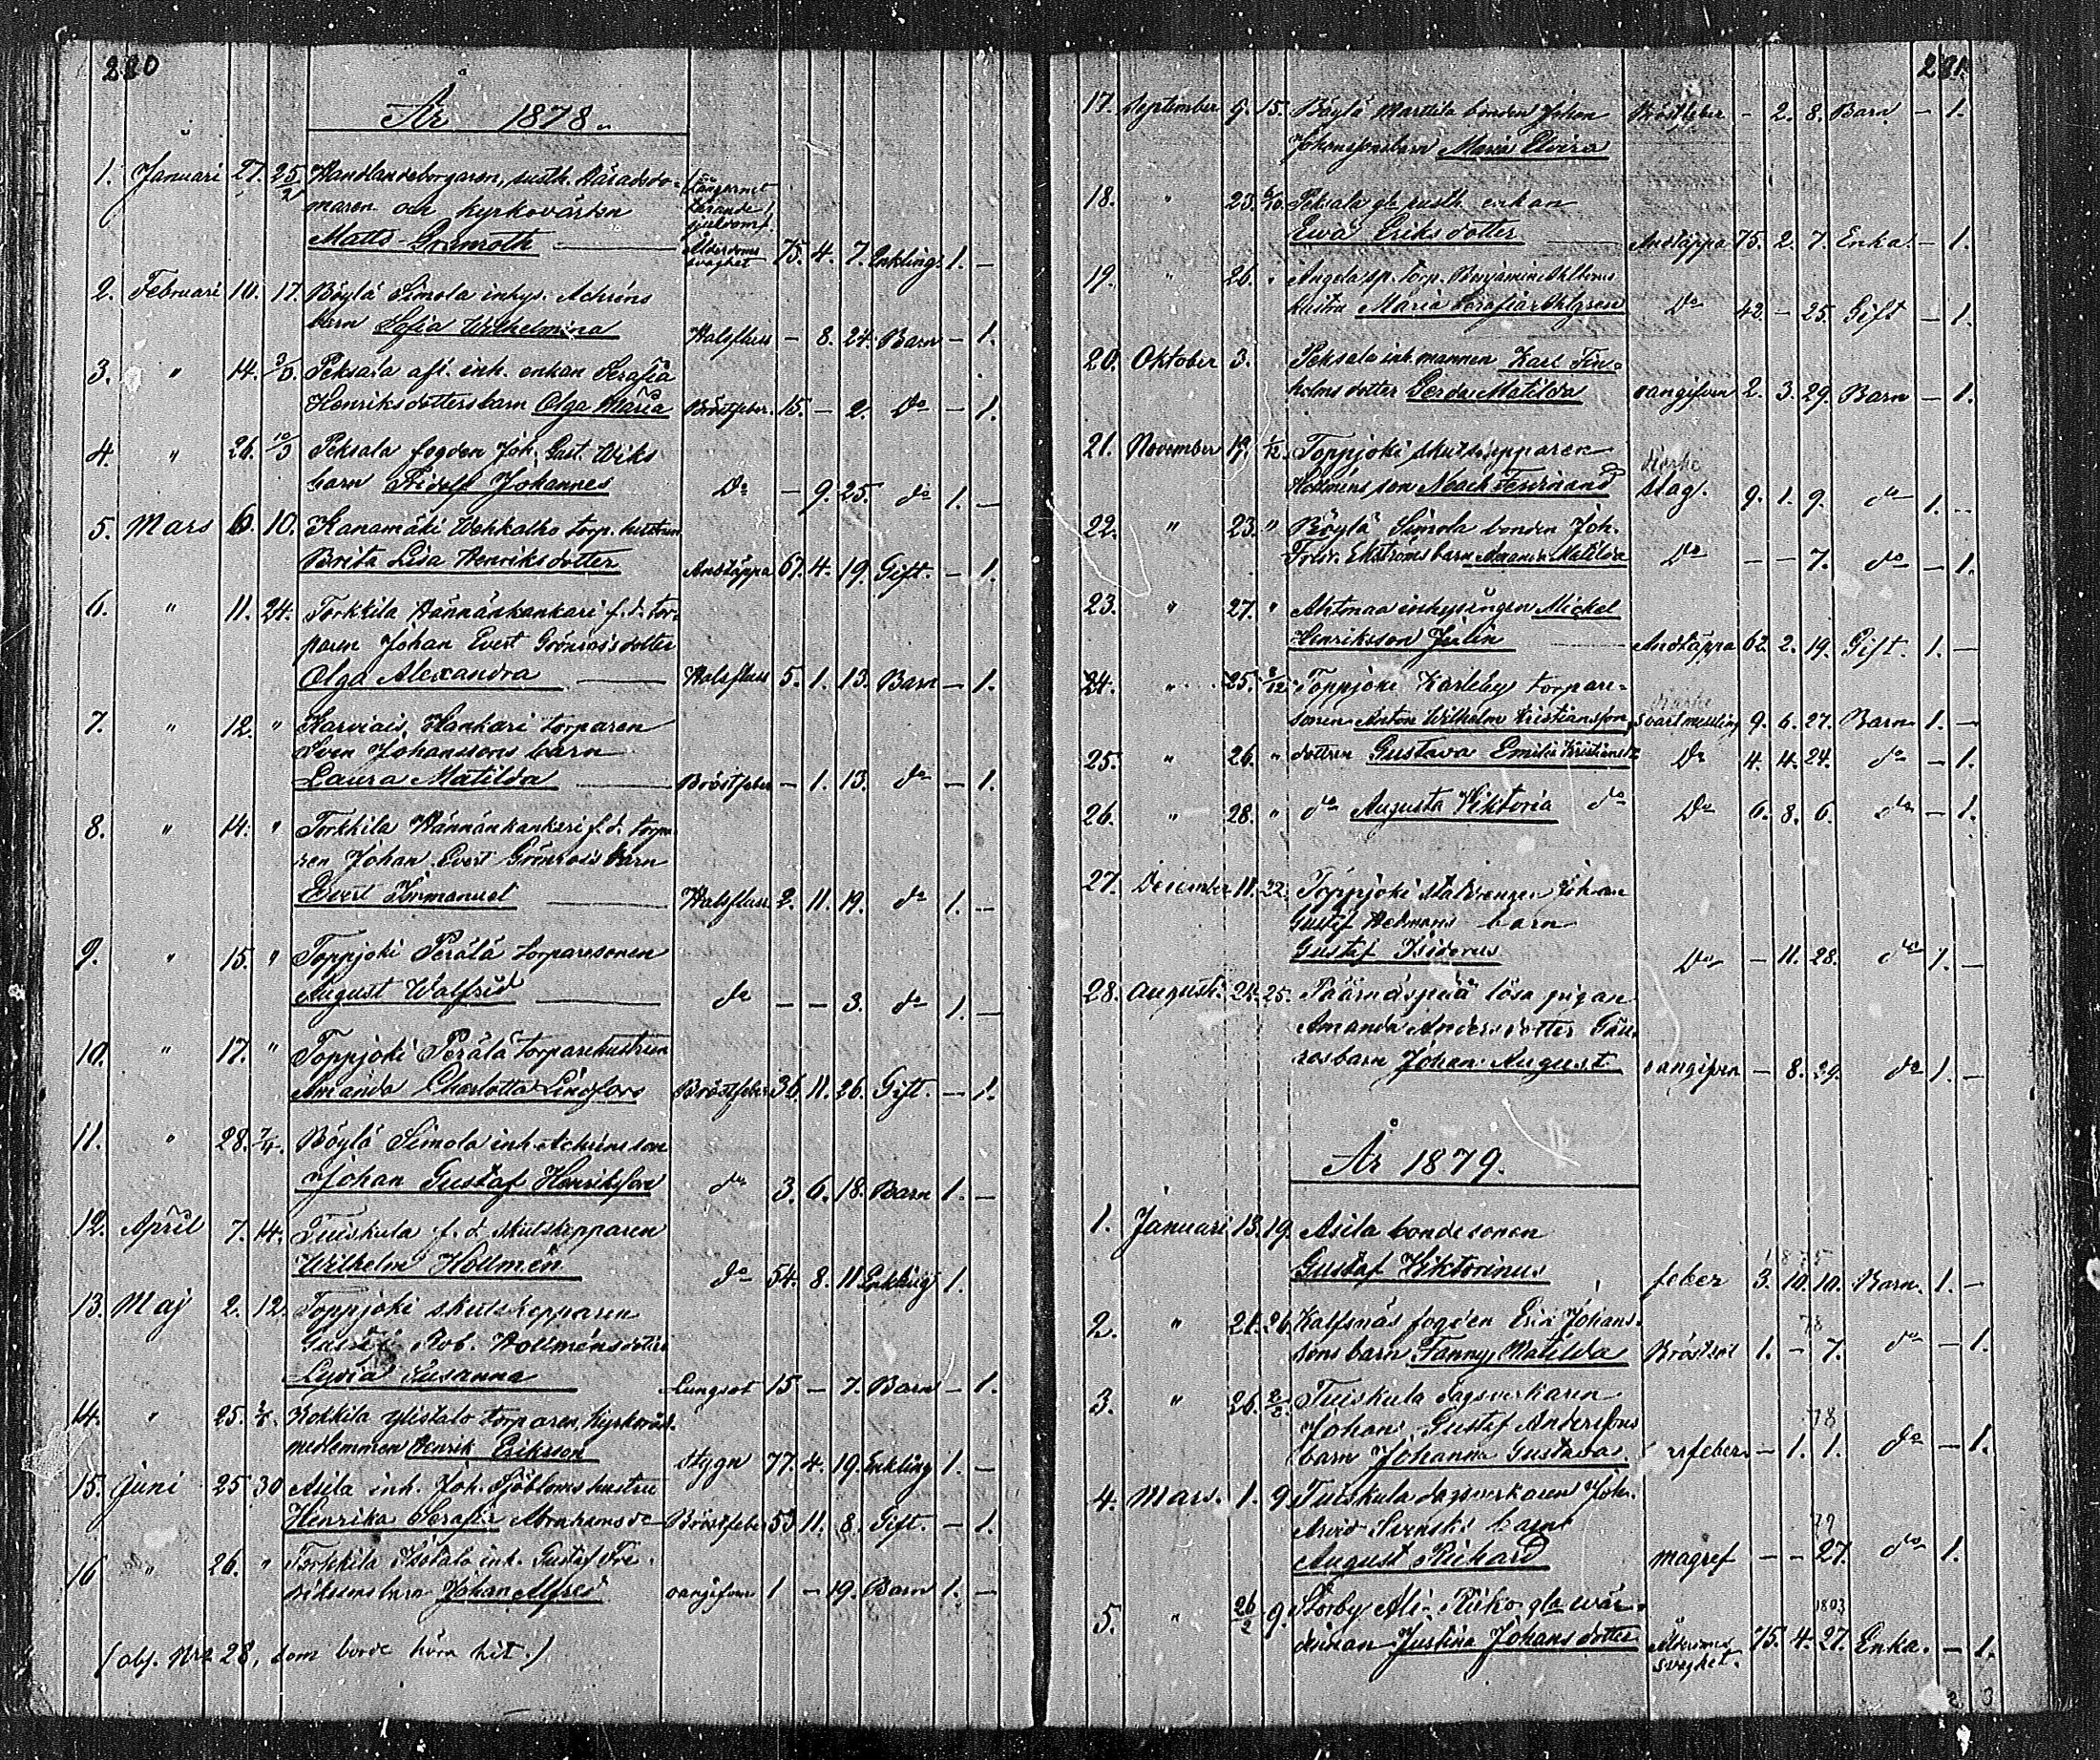 280
År 1878.
1. Januari 27. 25/2 Handlandeborgaren, rusth. Häradsdo-
maren och kyrkovärden
Matts Grönroth Långarnt tärande sjukdom. Ålderdoms svaghet 75. 4. 7. Enkling. 1. —
2. Februari 10. 17. Böylä Simola inhys. Achréns
barn Sofia Wilhelmina Halsfluss — 8. 24. Barn — 1.
3. " 14. 3/3. Peksala afl. inh. enkan Serafia
Henriksdottersbarn Olga Maria Bröstfeber. 15. — 2. Do — 1.
4. " 26. 10/3 Peksala fogden Joh. Gust. Wiks
barn Fridolf Johannes Do — 9. 25. do 1. —
5. Mars 6. 10. Kanamäki Wehkalho torp. hustrun
Brita Lisa Henriksdotter Andtäppa 67. 4. 19. Gift. — 1.
6. " 11. 24. Torkkila Hännänkankari f. d. tor-
paren Johan Evert Grönroos's dotter
Olga Alexandra Halsfluss 5. 1. 13. Barn — 1.
7. " 12. " Karviais, Hankari torparen
Sven Johanssons barn
Laura Matilda Bröstfeber — 1. 13. do — 1.
8. " 14. " Torkkila Hännänkankari f. d. torpa-
ren Johan Evert Grönroos's barn
Evert Immanuel Halsfluss 2. 11. 19. do 1. —
9. " 15. " Toppjoki Perälä torparesonen
August Walfrid do — — 3. do 1. —
10. " 17. " Toppjoki Perälä torparehustrun
Amanda Charlotta Lindfors Bröstfeber 36. 11. 26. Gift. — 1.
11. " 28. 7/4. Böylä Simola inh. Achréns son
Johan Gustaf Henriksson do 3. 6. 18. Barn 1. —
12. April 7. 14. Tuiskula f. d. skutskepparen
Wilhelm Hollmén do 54. 8. 11. Enkling 1.
13. Maj 2. 12. Toppjoki skutskepparen
Rob. Hollménsdotter
Lydia Susanna Lungsot 15 — 7. Barn — 1.
14. " 25. Kokkila ylistalo torparen, kyrkoråds-
medlemmen Henrik Eriksson Stygn 77. 4. 19. Enkling 1. —
15. Juni 25 30 Asila inh. Joh. Sjöbloms hustru
Henrika Serafia Abrahamsdr Bröstfeber 53 11. 8. Gift. — 1.
16 " 26. " Torkkila Isotalo inh. Gustaf Fre-
drikssons barn Johan Alfred oangifven 1 — 19. Barn 1. —
(obs. Nro 28, som borde höra hit.)
281.
17. September 9. 15. Böylä Marttila bonden Johan
Johanssonsbarn Maria Elvira Bröstfeber — 2. 8. Barn — 1.
18. " 23. 6/10. Peksala gla rusth. enkan
Ewa Eriksdotter Andtäppa 75. 2. 7. Enka. — 1.
19. " 26. " Angela sp. torp. Benjamin
hustru Maria Serafia Ahlgren Do 42. — 25. Gift — 1.
20. Oktober 3. Peksala inh. mannen Karl Fin-
holms dotter Gerda Matilda oangifven 2. 3. 29. Barn — 1.
21. November 19. 1/12 Toppjoki skutskepparen
Hollméns son Noach Ferdinand slag. 9. 1. 9. do 1. —
22. " 23. " Böylä Simola bonden Joh.
Fredr. Ekströms barn Amanda Matilda Do — — 7. do — 1.
23. " 27. " Ahtmaa inhysingen Mickel
Henriksson Julin Andtäppa 62. 2. 19. Gift. 1. —
24. " 25. 8/12. Toppjoki Karleby torpare-
sonen Anton Wilhelm Kristiansson, Svart messling 9. 6. 27. Barn 1. —
25. " 26. " dottren Gustava Emilia Kristiansdr Do 4. 4. 24. do — 1.
26. " 28. " do Augusta Viktoria do Do 6. 8. 6. do — 1.
27. December 11. 22. Toppjoki Staldrengen Johan
Gustaf Hedmans barn
Gustaf Isidorus Do — 11. 28. do 1. —
28. Augusti. 24. 25. Päärnäspää lösa pigan
Amanda Andersdotter
barn Johan August oangifven — 8. 29. do 1. —
År 1879.
1. Januari 13. 19. Asila bondesonen
Gustaf Viktorinus feber 3. 10. 10. Barn. 1. —
2. " 21. 26. Kalfsnäs fogden Erik Johans-
sons barn Fanny Matilda Bröstsot 1. — 7. do — 1.
3. " 26. 2/2. Tuiskula dagsverkaren
Johan Gustaf Anderssons
barn Johanna Gustava — 1. 1. do — 1.
4. Mars. 1. 9. Tuiskula dagsverkaren Joh.
Arvid Svensks barn
August Richard magref — — 27. do 1.
5. " 26/2 9. Storby Ali-Riiko gla vär-
dinnan Justina Johansdotter Ålderdoms svaghet. 75. 4. 27. Enka. — 1.
2 3